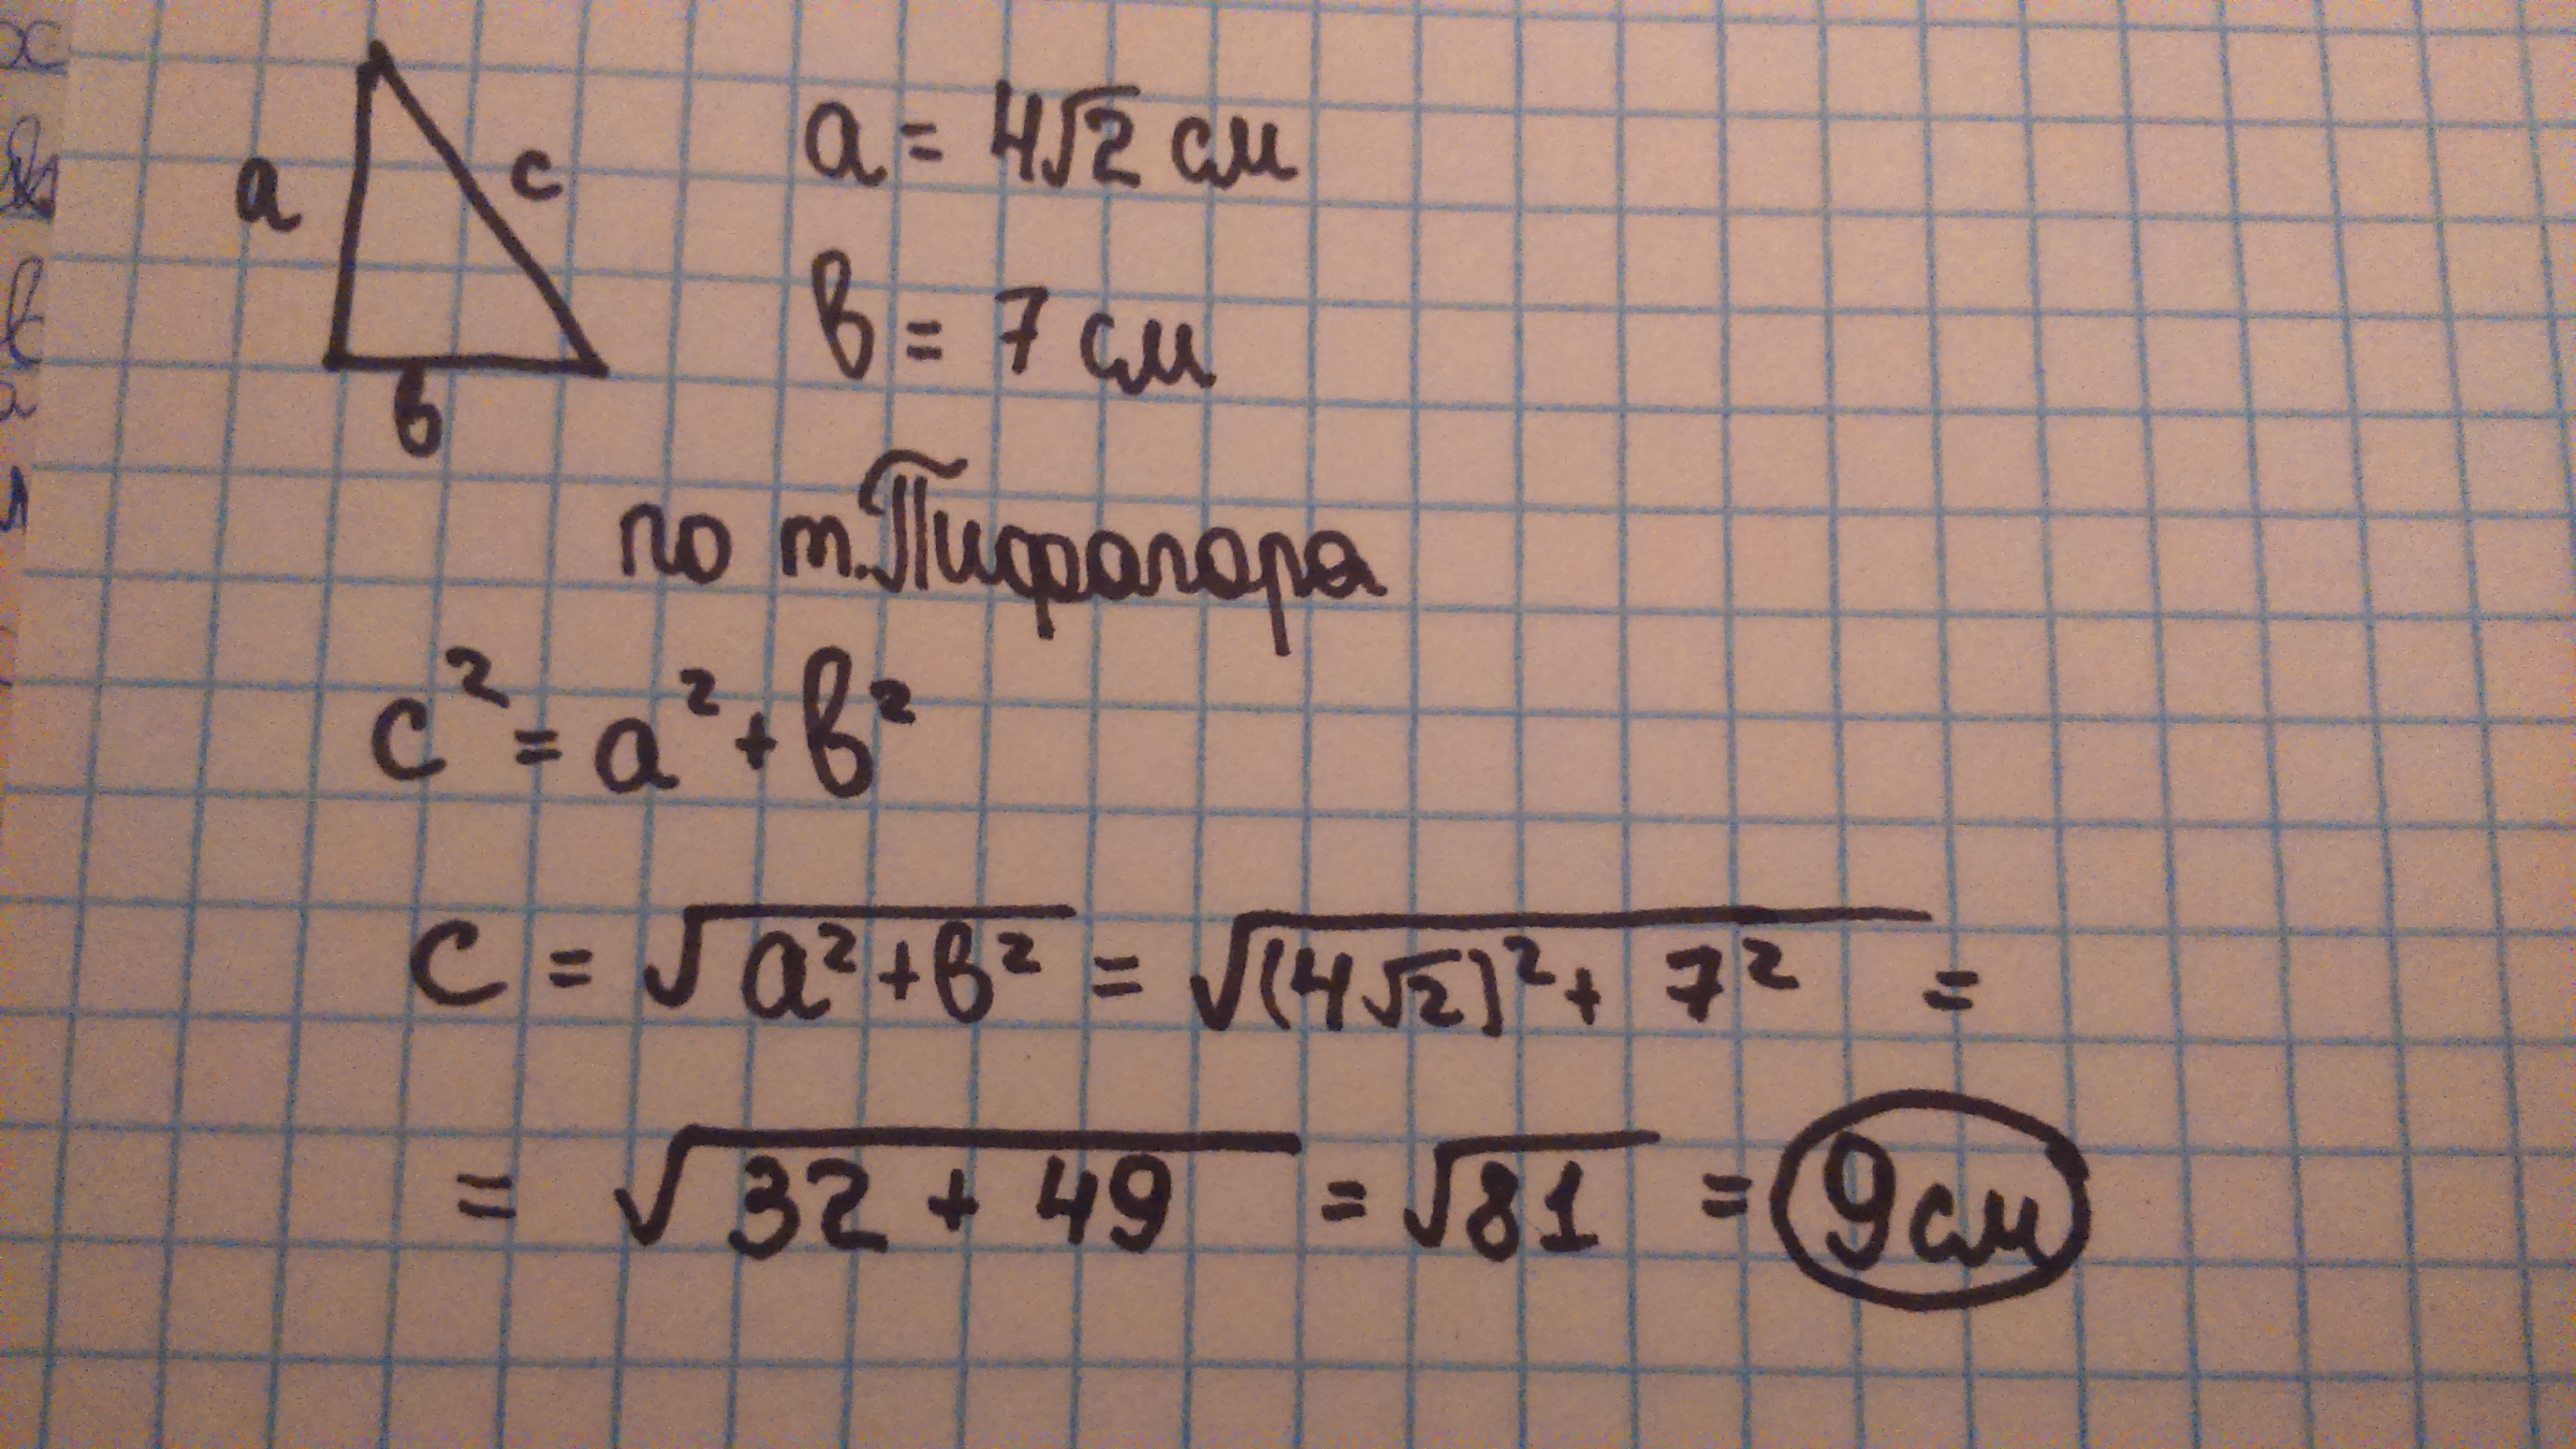 a c a = 4√2 см
в = 7 см
в
по т. Пифагора
c² = a² + в²
c = √(a² + в²) = √((4√2)² + 7²) =
= √(32 + 49) = √81 = 9 см